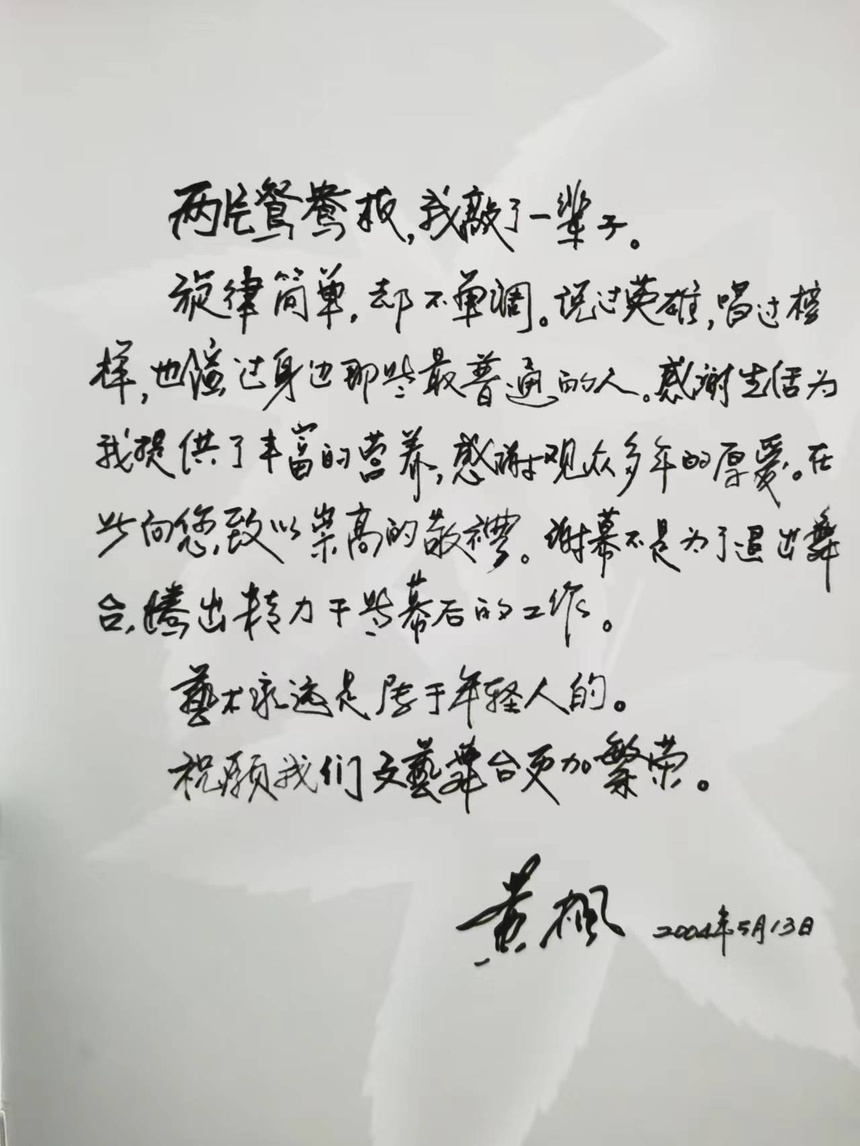 两片鸳鸯板,我敲了一辈子。
旋律简单,却不单调。说过英雄,唱过榜
样,也演过身边那些最普通的人。感谢生活为
我提供了丰富的营养,感谢观众多年的厚爱。在
此向您致以崇高的敬禮。谢幕不是为了退出舞
台,腾出精力干些幕后的工作。
藝术永远是属于年轻人的。
祝願我们文藝舞台更加繁荣。
黄枫 2004年5月13日